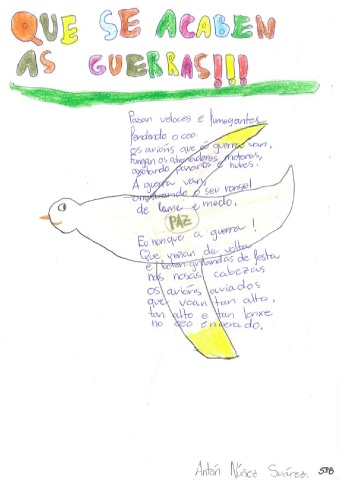 QUE SE ACABEN
AS GUERRAS!!!
Pasan veloces e fumegantes
fendendo o ceo.
Os avións que á guerra van,
os atronadores motores,
paxaros e nubes.
Á guerra van,
arrastrando o seu ronsel
de lume e medo.
PAZ
Eu non que a guerra!
Que veñan de volta
e boten grinaldas de festa
nas nosas cabezas
os avións aviados
que voan tan alto,
tan alto e tan lonxe
no ceo
Antón Núñez Suárez. 5ºB